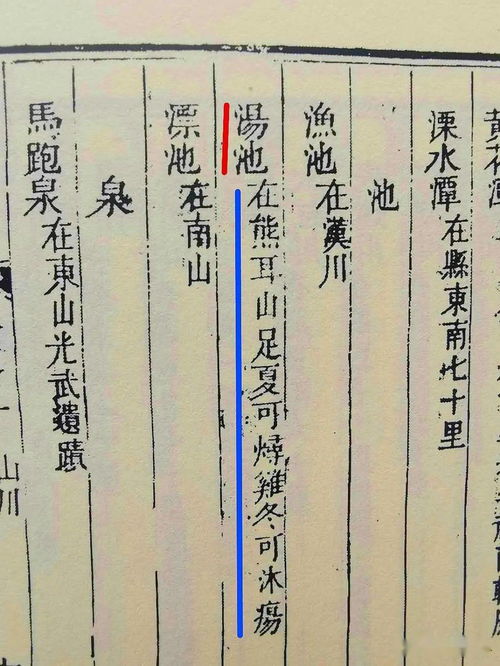 黄花潭
溧水潭在縣東南七十里
池
漁池在漢川
湯池在熊耳山足夏可燖雞冬可沐瘍
漂池在南山
泉
馬跑泉在東山光武遺蹟
山川